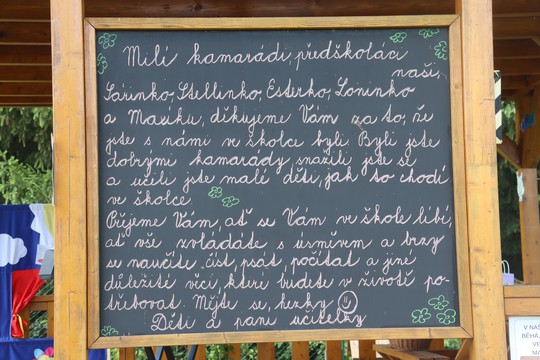 Milí kamarádi, předškoláci
naši,
Sárinko, Stellinko, Esterko, Loninko
a Maxíku, děkujeme Vám za to, že
jste s námi ve školce byli. Byli jste
dobrými kamarády, snažili jste se
a učili jste malé děti, jak to chodí
ve školce.
Přejeme Vám, ať se Vám ve škole líbí,
ať vše zvládáte s úsměvem a brzy
se naučíte číst, psát, počítat a jiné
důležité věci, které budete v životě po-
třebovat. Mějte se hezky
Děti a paní učitelky
V NAŠ
BĚHA
VE
MA